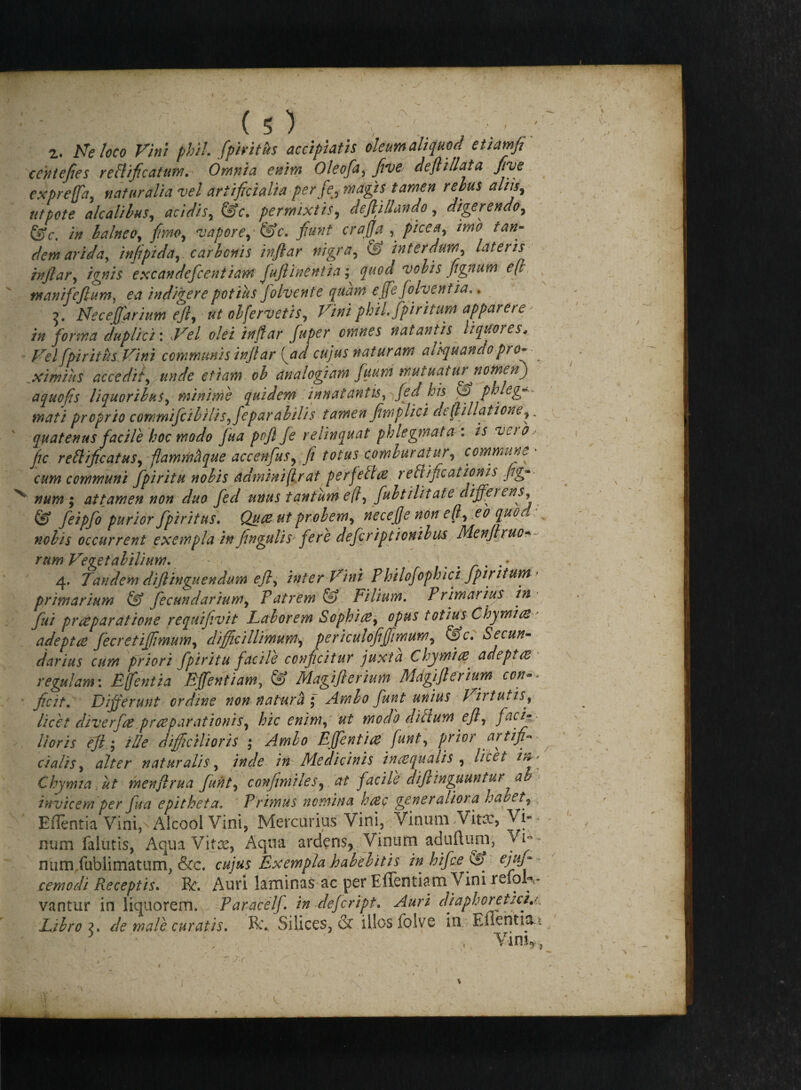 ( 5 )
2. Ne loco Vini phil. ſpiritûs accipiatis oleum aliquod etiamſi
centeſies rectificatum. Omnia enim Oleoſa, ſive deſtillata ſive
expreſſa, naturalia vel artificialia per ſe, magis tamen rebus aliis,
utpote alcalibus, acidis, &c. permixtis, deſtillando, digerendo,
&c. in balneo, fimo, vapore, &c. fiunt craſſa, picea, imo tan-
dem arida, inſipida, carbonis inſtar nigra, & interdum, lateris
inſtar, ignis excandeſcentiam ſuſtinentia; quod vobis ſignum eſt
manifeſtum, ea indigere potiùs ſolvente quàm eſſe ſolventia.
3. Neceſſarium eſt, ut obſervetis, Vini phil. ſpiritum apparere
in forma duplici: Vel olei inſtar ſuper omnes natantis liquores.
Vel ſpiritûs Vini communis inſtar (ad cujus naturam aliquando pro-
ximiùs accedit, unde etiam ob analogiam ſuum mutuatur nomen)
aquoſis liquoribus, minimè quidem innatantis, ſed his & phleg-
mati proprio commiſcibilis, ſeparabilis tamen ſimplici deſtillatione,
quatenus facilè hoc modo ſua poſt ſe relinquat phlegmata: is verò
ſic rectificatus, flammâque accenſus, ſi totus comburatur, commune
cum communi ſpiritu nobis adminiſtrat perfectæ rectificationis ſig-
num; attamen non duo ſed unus tantùm eſt, ſubtilitate differens,
& ſeipſo purior ſpiritus. Quæ ut probem, neceſſe non eſt, eò quòd
nobis occurrent exempla in ſingulis ferè deſcriptionibus Menſtruo-
rum Vegetabilium.
4. Tandem diſtinguendum eſt, inter Vini Philoſophici ſpiritum
primarium & ſecundarium, Patrem & Filium. Primarius in
ſui præparatione requiſivit Laborem Sophiæ, opus totius Chymiæ
adeptæ ſecretiſſimum, difficillimum, periculoſiſſimum, &c. Secun-
darius cum priori ſpiritu facilè conficitur juxta Chymiæ adeptæ
regulam: Eſſentia Eſſentiam, & Magiſterium Magiſterium con-
ficit. Differunt ordine non naturâ; Ambo ſunt unius Virtutis,
licèt diverſæ præparationis, hic enim, ut modò dictum eſt, faci-
lioris eſt; ille difficilioris; Ambo Eſſentiæ ſunt, prior artifi-
cialis, alter naturalis, inde in Medicinis inæqualis, licèt in
Chymia ut menſtrua ſunt, conſimiles, at facilè diſtinguuntur ab
invicem per ſua epitheta. Primus nomina hæc generaliora habet,
Eſſentia Vini, Alcool Vini, Mercurius Vini, Vinum Vitæ, Vi-
num ſalutis, Aqua Vitæ, Aqua ardens, Vinum aduſtum, Vi-
num ſublimatum, &c. cujus Exempla habebitis in hiſce & ejuſ-
cemodi Receptis. ℞. Auri laminas ac per Eſſentiam Vini reſol-
vantur in liquorem. Paracelſ. in deſcript. Auri diaphoretici.
Libro 3. de male curatis. ℞. Silices, & illos ſolve in Eſſentia
Vini,